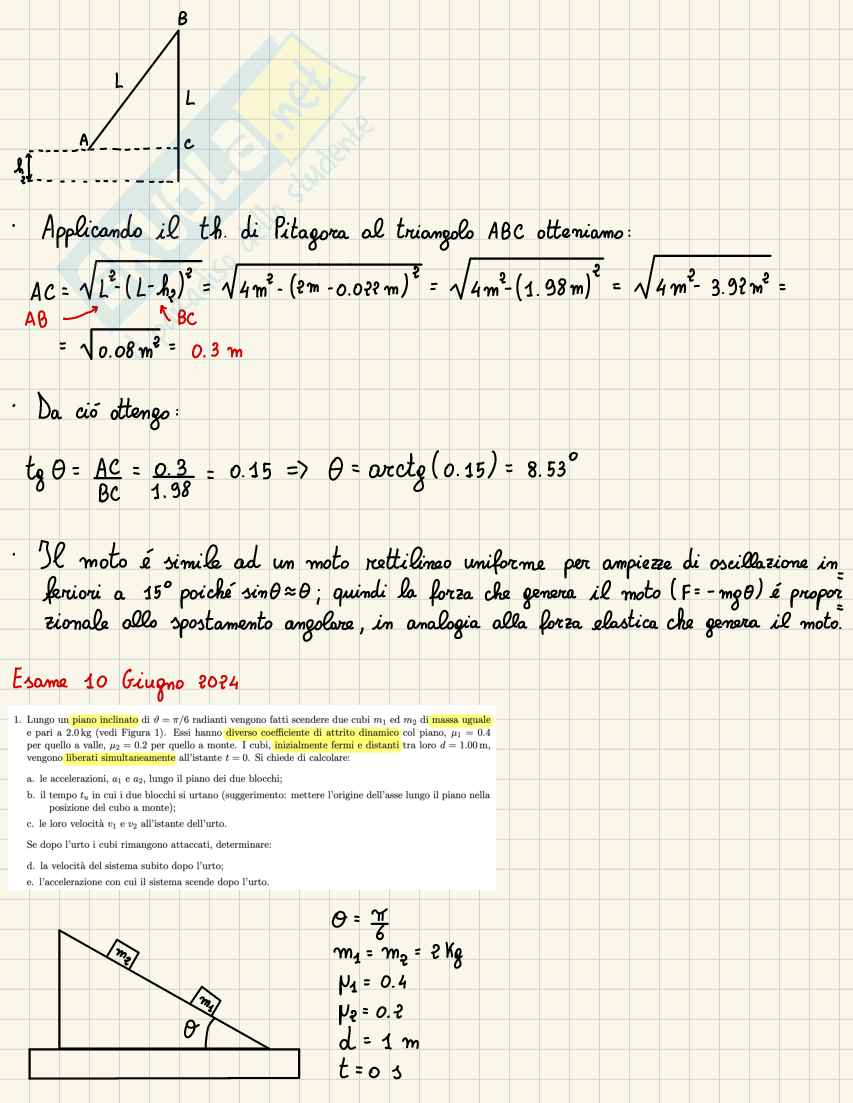 B
L
L
A
C
h₂
· Applicando il th. di Pitagora al triangolo ABC otteniamo:
AC = √(L² - (L - h₂)²) = √(4m² - (2m - 0.022 m)²) = √(4m² - (1.98 m)²) = √(4m² - 3.92 m²) =
AB BC
= √(0.08 m²) = 0.3 m
· Da ció ottengo:
tg θ = AC/BC = 0.3/1.98 = 0.15 => θ = arctg(0.15) = 8.53°
· Il moto é simile ad un moto rettilineo uniforme per ampiezze di oscillazione in=
feriori a 15° poiché sinθ≈θ; quindi la forza che genera il moto (F = -mgθ) é propor=
zionale allo spostamento angolare, in analogia alla forza elastica che genera il moto.
Esame 10 Giugno 2024
1. Lungo un piano inclinato di ϑ = π/6 radianti vengono fatti scendere due cubi m₁ ed m₂ di massa uguale
e pari a 2.0 kg (vedi Figura 1). Essi hanno diverso coefficiente di attrito dinamico col piano, μ₁ = 0.4
per quello a valle, μ₂ = 0.2 per quello a monte. I cubi, inizialmente fermi e distanti tra loro d = 1.00 m,
vengono liberati simultaneamente all'istante t = 0. Si chiede di calcolare:
a. le accelerazioni, a₁ e a₂, lungo il piano dei due blocchi;
b. il tempo tᵤ in cui i due blocchi si urtano (suggerimento: mettere l'origine dell'asse lungo il piano nella
posizione del cubo a monte);
c. le loro velocità v₁ e v₂ all'istante dell'urto.
Se dopo l'urto i cubi rimangono attaccati, determinare:
d. la velocità del sistema subito dopo l'urto;
e. l'accelerazione con cui il sistema scende dopo l'urto.
m₂
m₁
θ
θ = π/6
m₁ = m₂ = 2 Kg
μ₁ = 0.4
μ₂ = 0.2
d = 1 m
t = 0 s
skuola.net
paradiso dello studente